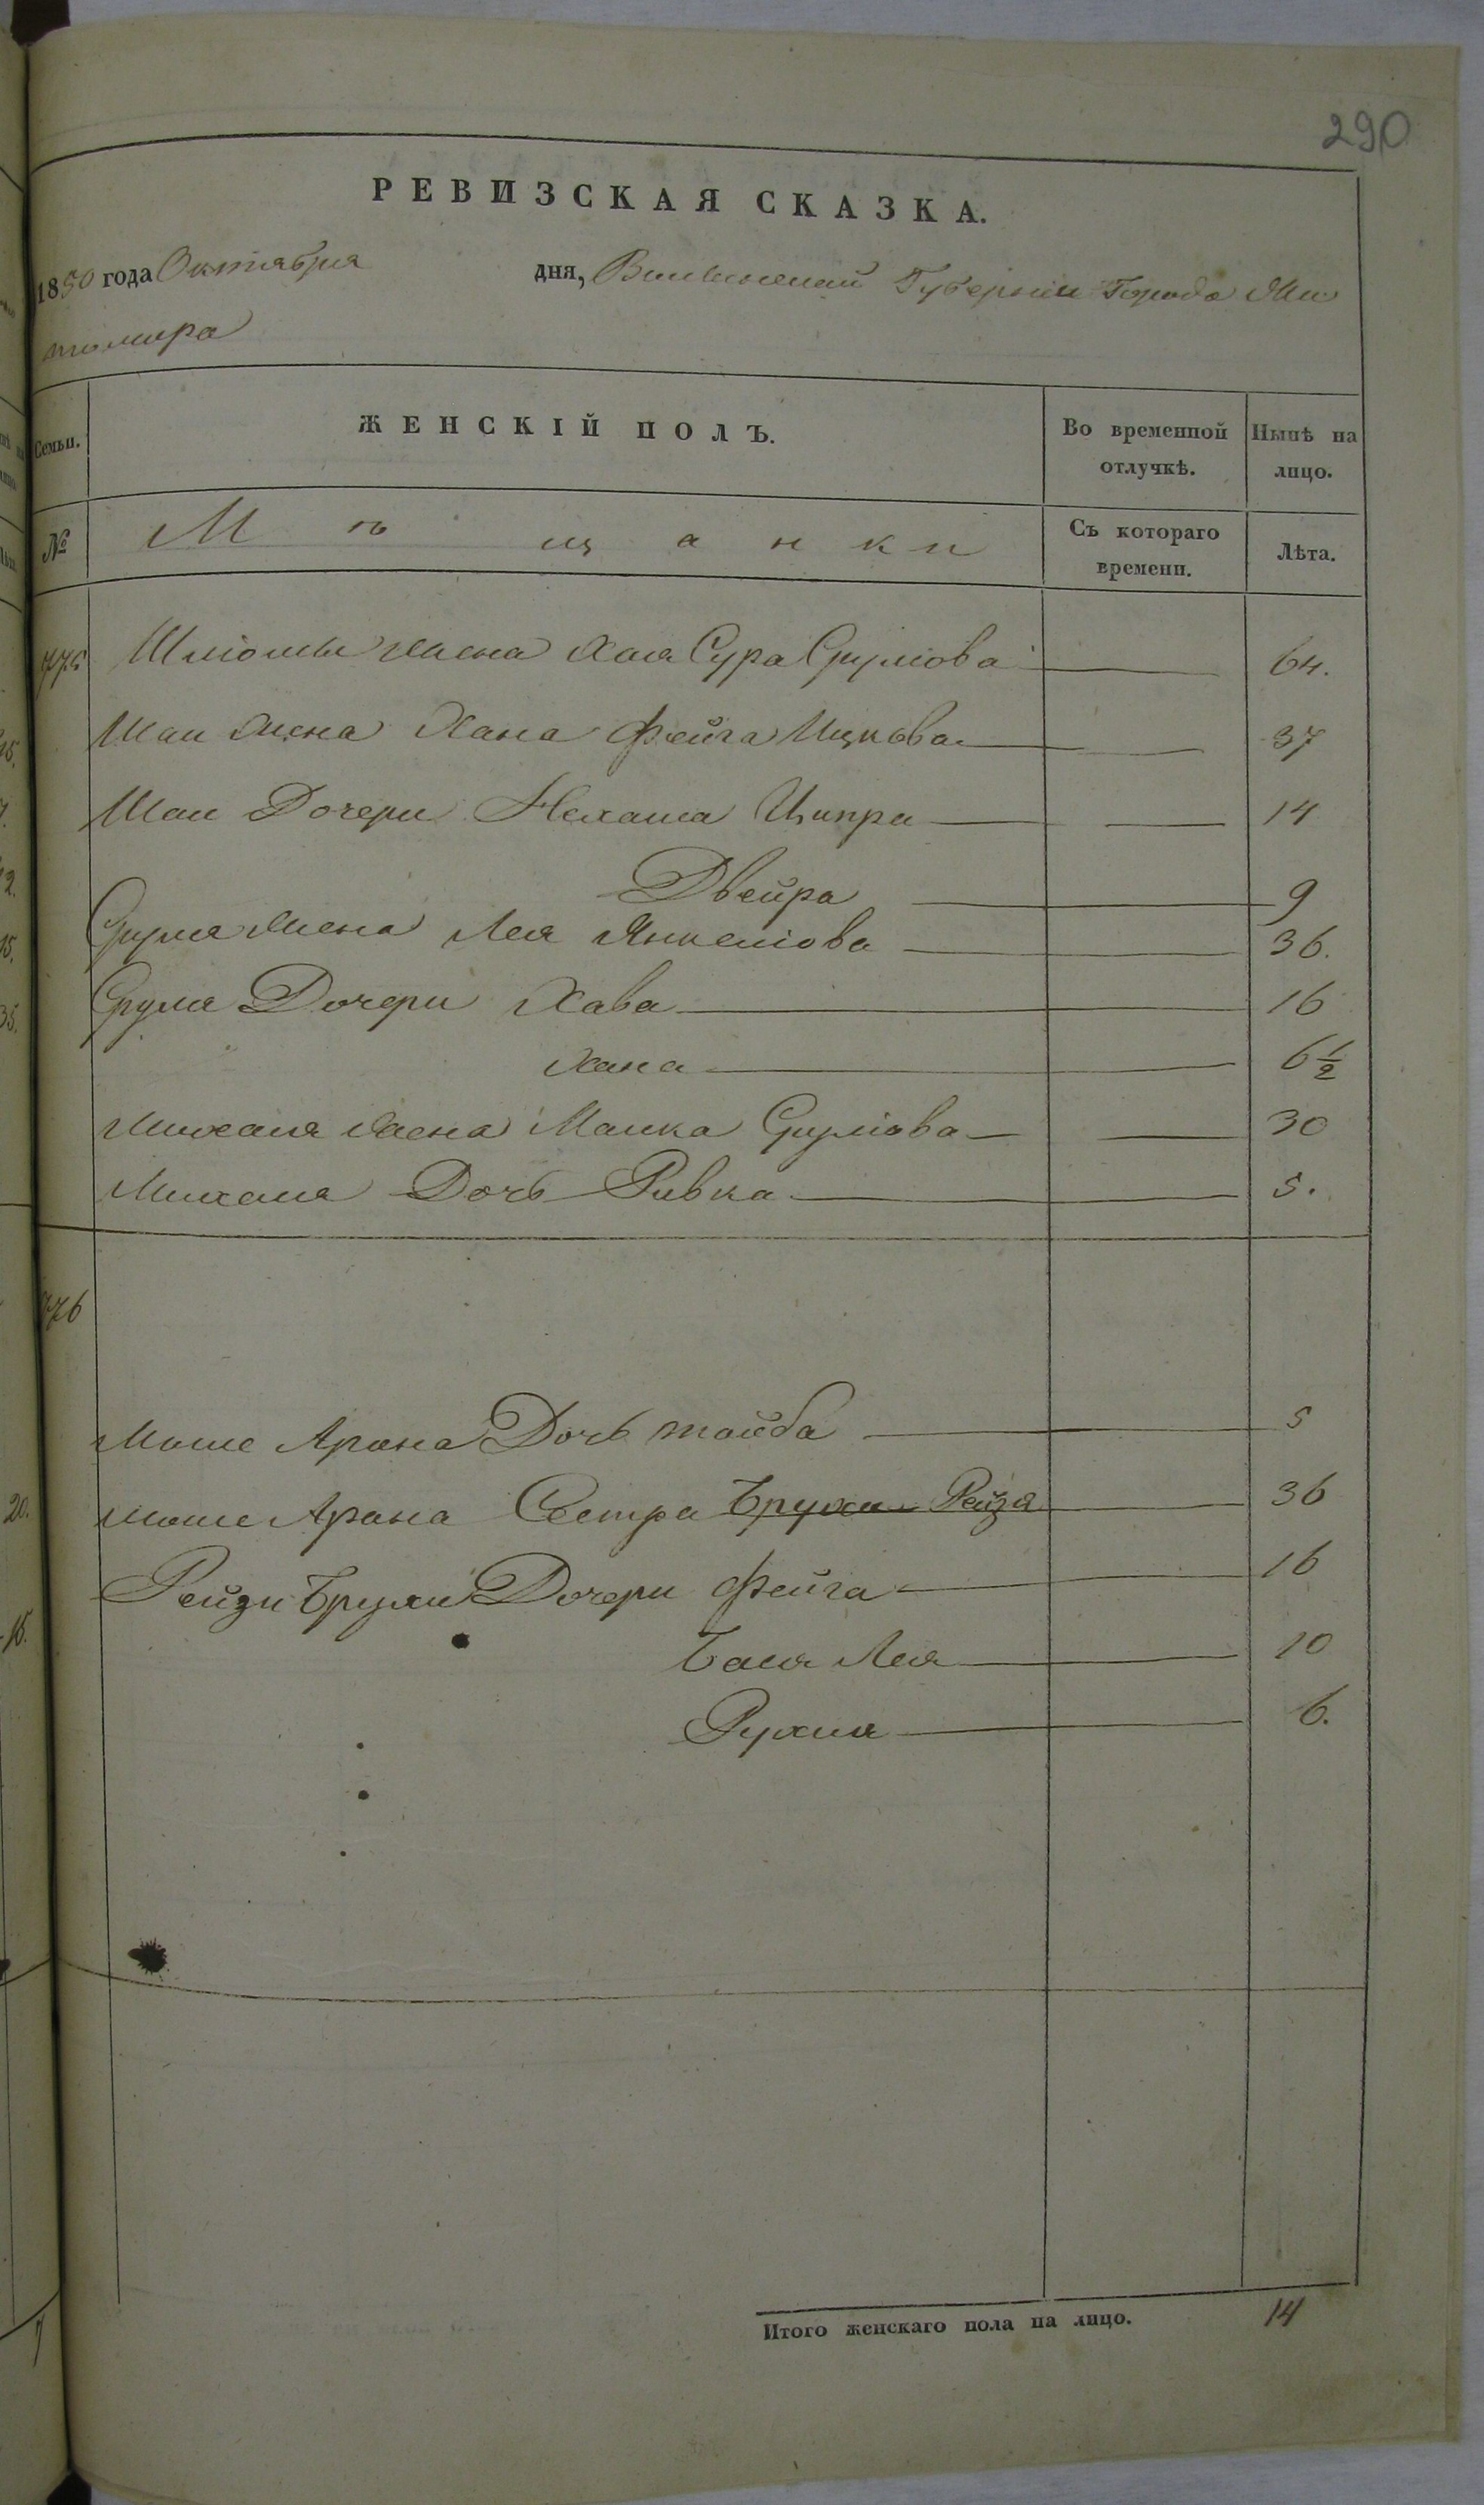 290
РЕВИЗСКАЯ СКАЗКА.
1850 года Октября дня, Волынской Губернии Города Жи
томира
Семьи. ЖЕНСКІЙ ПОЛЪ. Во временной отлучкѣ. Нынѣ на лицо.
№ Мѣщанки Съ котораго времени. Лѣта.
775 Шліомы жена Хая Сура Сруліова 64.
Шаи жена Хана Фейга Ицкова 37
Шаи Дочери Нехама Ципра 14
Двейра 9
Сруля жена Лея Янкеліова 36.
Сруля Дочери Хава 16
Хана 6 1/2
Михеля жена Малка Сруліова 30
Михеля Дочь Ривка 5.
776
Моше Арона Дочь тойба 5
Моше Арона Сестра Бруха Рейзя 36
Рейзи Брухи Дочери Фейга 16
Бася Лея 10
Рухля 6.
Итого женскаго пола на лицо. 14